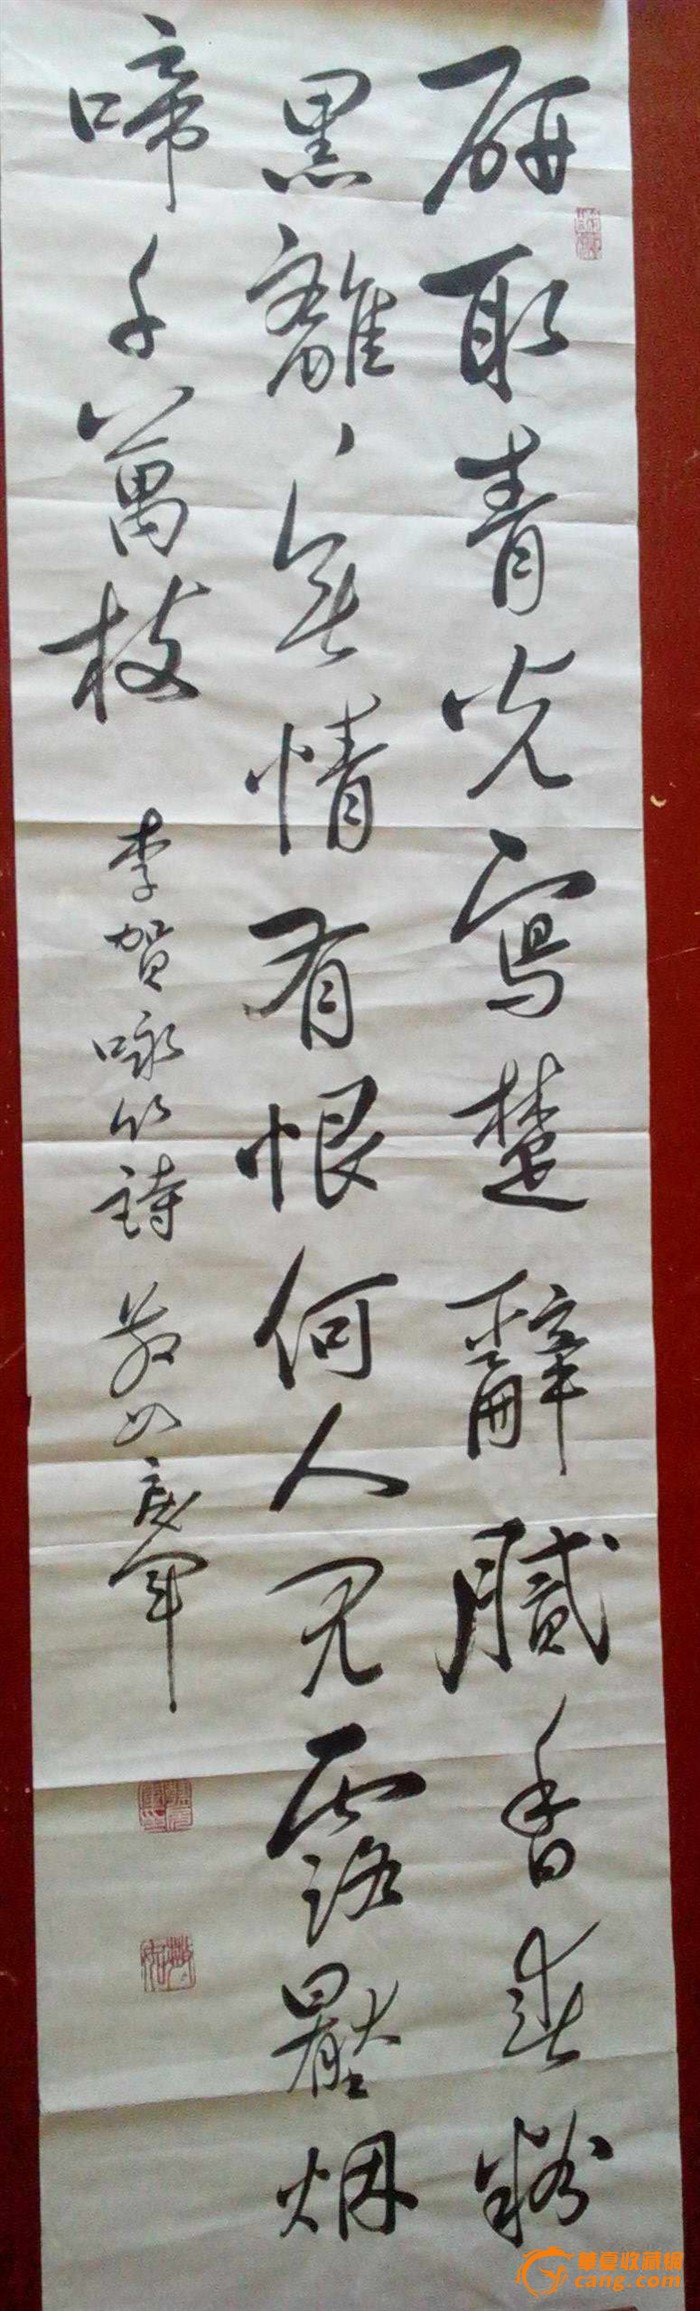 斫取青光寫楚辭膩香春粉
黑離、無情有恨何人見露壓烟
啼千萬枝
李賀咏竹詩
華夏收藏網
cang.com